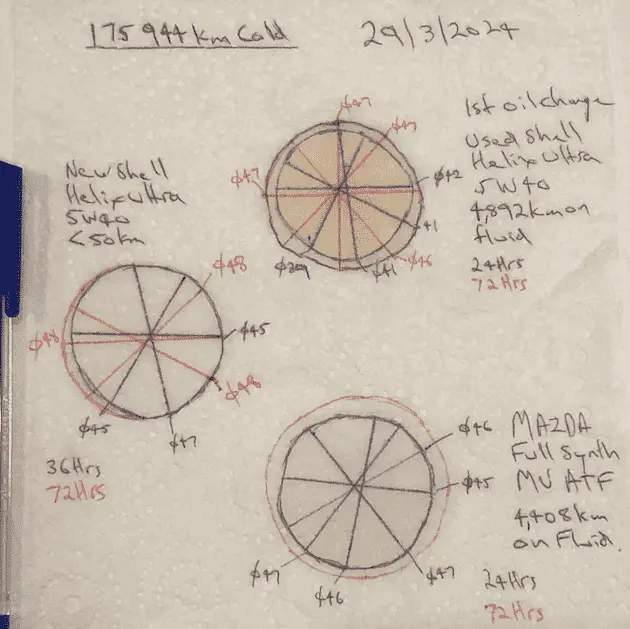 175 944km Cold
29/3/2024
1st oil change
Used Shell
Helix Ultra
5W40
4,892km on
fluid
24Hrs
72Hrs
ø47
ø47
ø47
ø42
41
ø46
ø41
ø39
New Shell
Helix Ultra
5W40
<50km
ø48
ø48
ø45
ø48
ø45
ø47
36Hrs
72Hrs
MAZDA
Full Synth
MV ATF
4,408km
on Fluid.
24Hrs
72Hrs
ø46
ø45
ø47
ø46
ø47